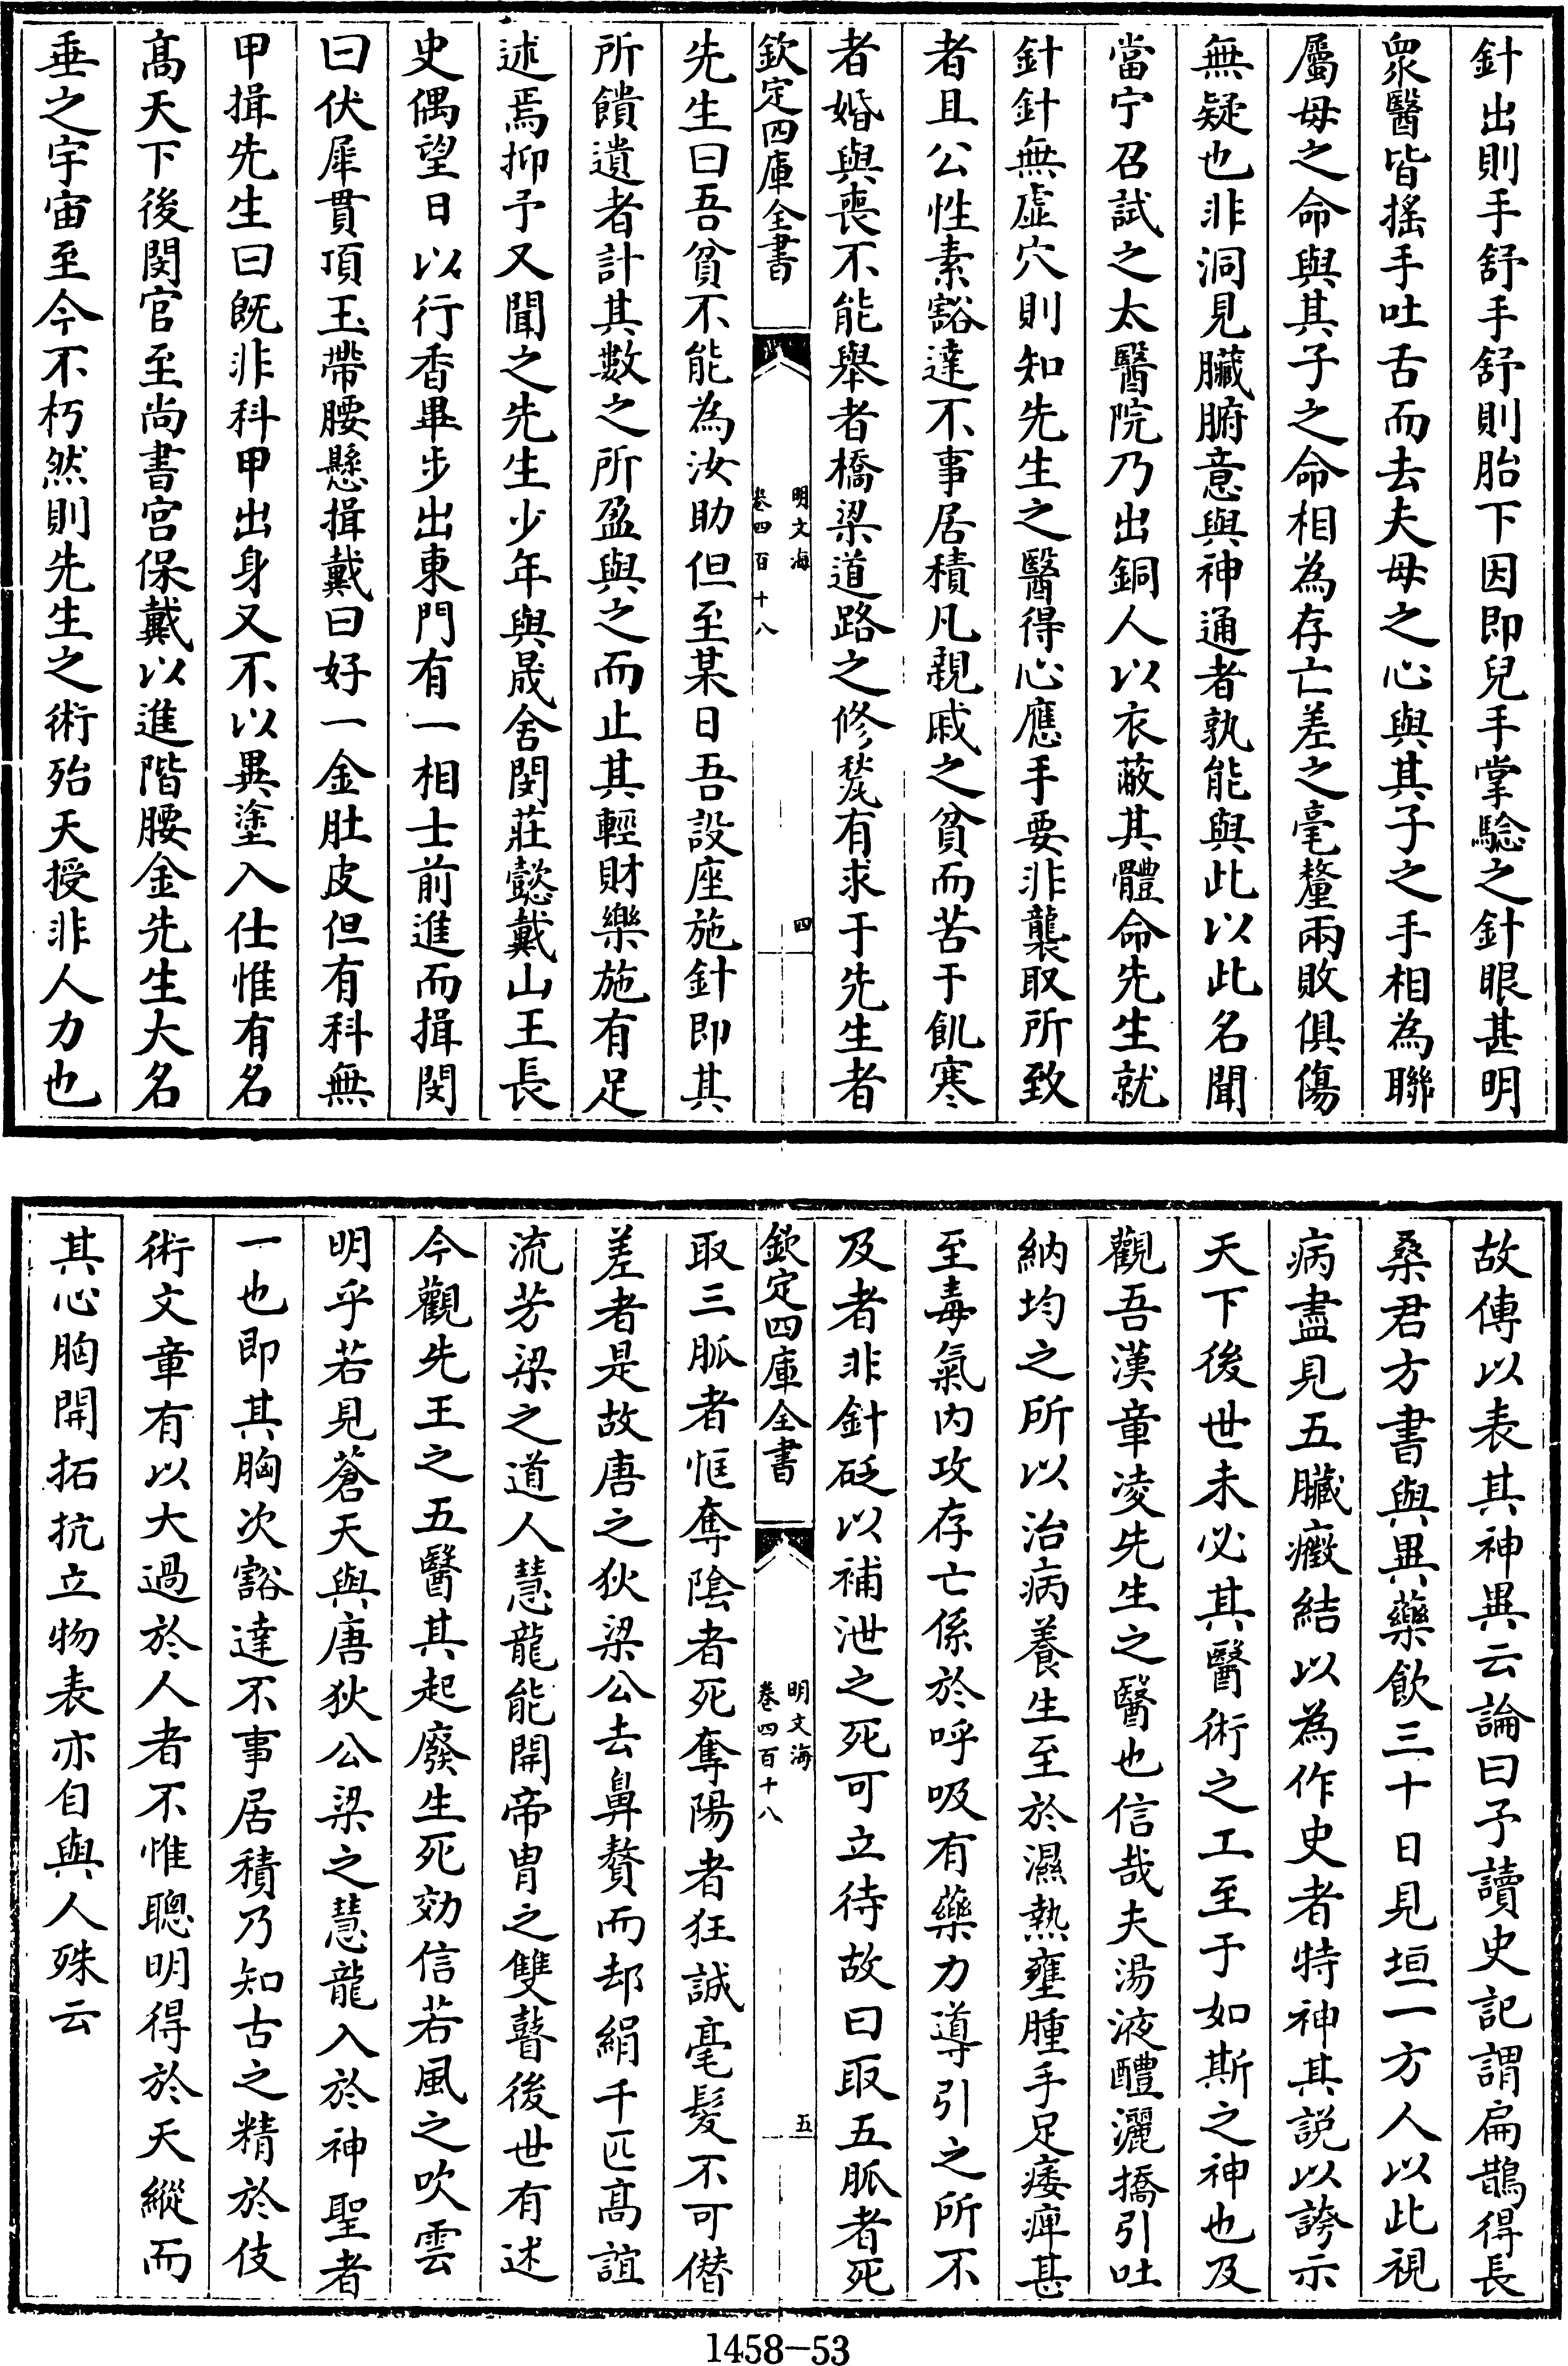 針出則手舒手舒則胎下因即兒手掌驗之針眼甚明
衆醫皆搖手吐舌而去夫母之心與其子之手相為聯
屬母之命與其子之命相為存亡差之毫釐兩敗俱傷
無疑也非洞見臟腑意與神通者孰能與此以此名聞
當宁召試之太醫院乃出銅人以衣蔽其體命先生就
針針無虛穴則知先生之醫得心應手要非襲取所致
者且公性素豁達不事居積凡親戚之貧而苦于飢寒
者婚與喪不能舉者橋梁道路之修甃有求于先生者
欽定四庫全書
明文海
卷四百十八
四
先生曰吾貧不能為汝助但至某日吾設座施針即其
所饋遺者計其數之所盈與之而止其輕財樂施有足
述焉抑予又聞之先生少年與晟舍閔莊懿戴山王長
史偶望日以行香畢步出東門有一相士前進而揖閔
曰伏犀貫頂玉帶腰懸揖戴曰好一金肚皮但有科無
甲揖先生曰旣非科甲出身又不以異塗入仕惟有名
髙天下後閔官至尚書宫保戴以進階腰金先生大名
垂之宇宙至今不朽然則先生之術殆天授非人力也
故傳以表其神異云論曰予讀史記謂扁鵲得長
桑君方書與異藥飲三十日見垣一方人以此視
病盡見五臟癥結以為作史者特神其說以誇示
天下後世未必其醫術之工至于如斯之神也及
觀吾漢章凌先生之醫也信哉夫湯液醴灑撟引吐
納均之所以治病養生至於濕熱壅腫手足痿痺甚
至毒氣内攻存亡係於呼吸有藥力導引之所不
及者非針砭以補泄之死可立待故曰取五脈者死
欽定四庫全書
明文海
卷四百十八
五
取三脈者恇奪陰者死奪陽者狂誠毫髪不可僣
差者是故唐之狄梁公去鼻贅而却絹千匹髙誼
流芳梁之道人慧龍能開帝胄之雙瞽後世有述
今觀先王之五醫其起廢生死効信若風之吹雲
明乎若見蒼天與唐狄公梁之慧龍入於神聖者
一也即其胸次豁達不事居積乃知古之精於伎
術文章有以大過於人者不惟聰明得於天縱而
其心胸開拓抗立物表亦自與人殊云
1458-53